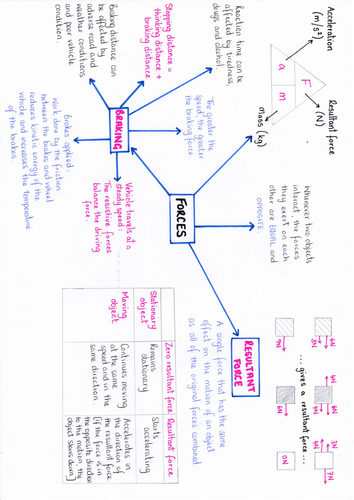 Acceleration
(m/s²)
Resultant force
(N)
F
a
m
Mass (kg)
Whenever two objects
interact, the forces
they exert on each
other are EQUAL and
OPPOSITE.
FORCES
BRAKING
Reaction time can be
affected by tiredness,
drugs and alcohol
Stopping distance =
thinking distance +
braking distance
Braking distance can
be affected by
adverse road and
weather conditions
and poor vehicle
condition.
The greater the
speed, the greater
the braking force
Brakes applied:
Work done by the friction
between the brakes and wheel
reduces kinetic energy of the
vehicle and increases the temperature
of the brakes.
Vehicle travels at a
steady speed:
The resistive forces
balance the driving
force.
RESULTANT
FORCE
A single force that has the same
effect on the motion of an object
as all of the original forces combined
6N
3N
6N
6N
3N
4N
7N
...gives a resultant force...
9N
0N
Zero resultant force
Resultant force
Stationary
object
Remains
stationary
Starts
accelerating
Moving
object
Continues moving
at the same
speed and in the
same direction
Accelerates in
the direction of
the resultant force
[If the force is in
the opposite direction
to the motion, the
object slows down]